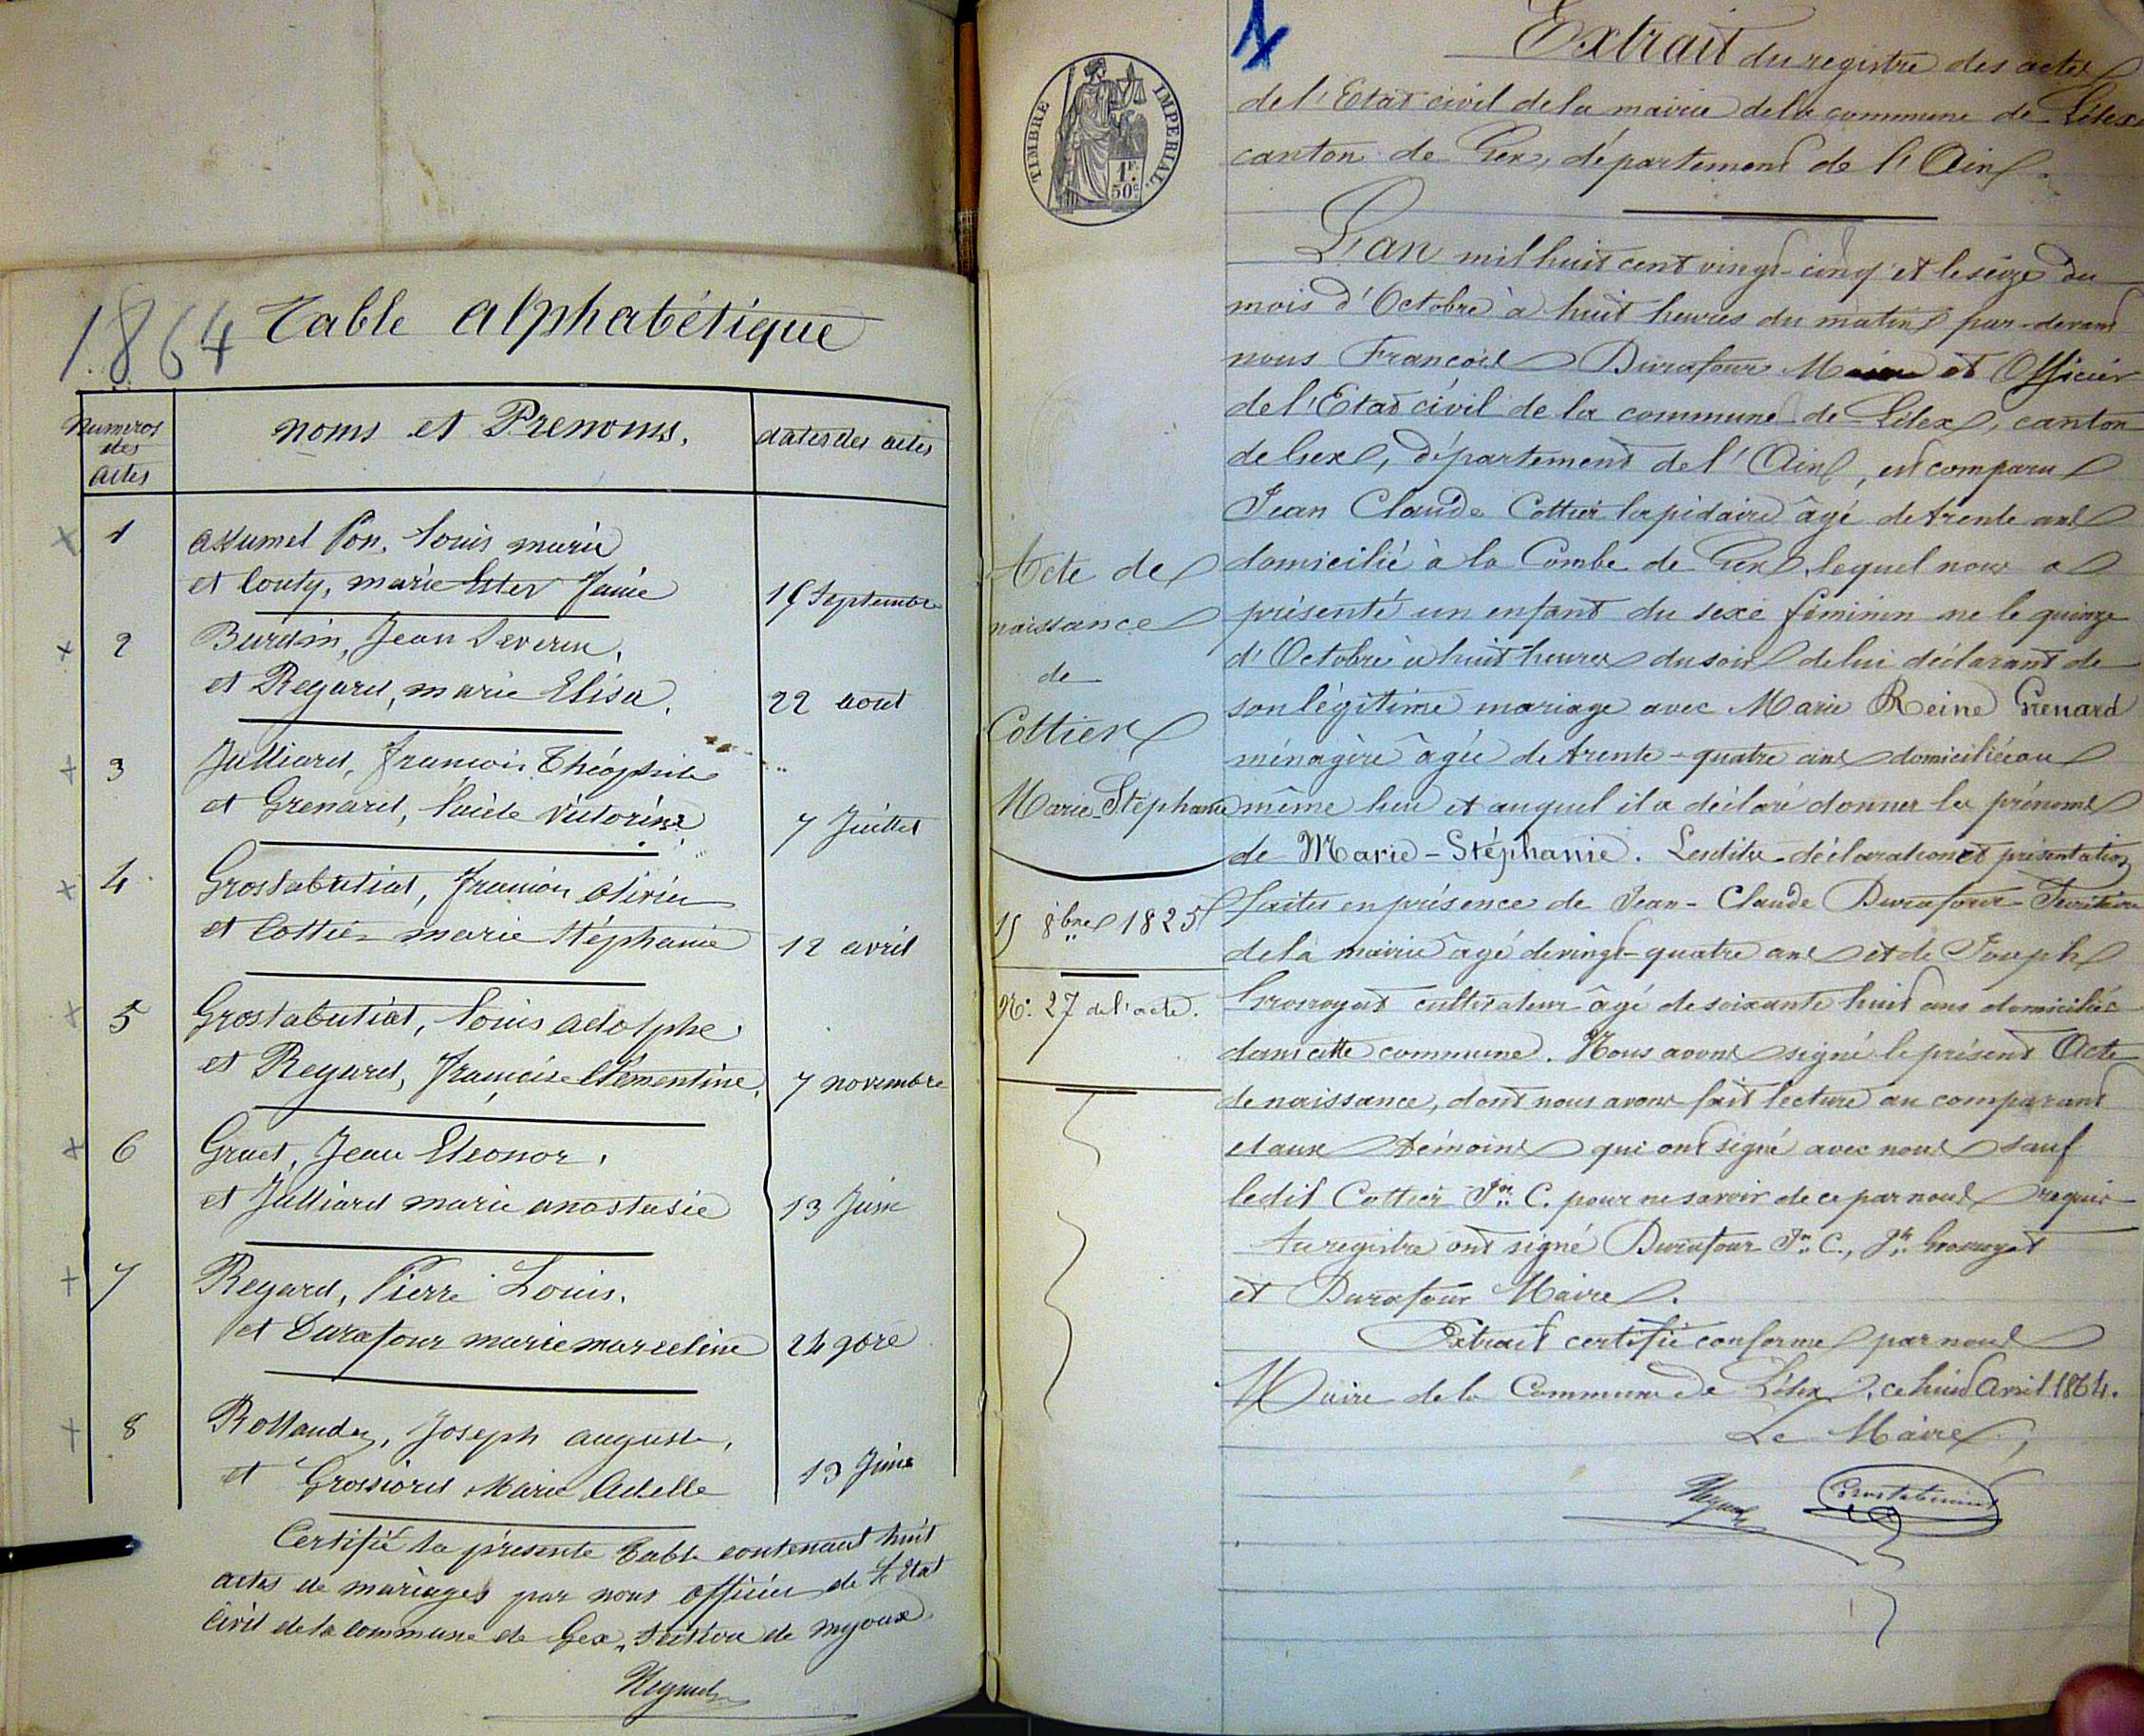 1864 Table alphabétique
Numeros des actes
noms et Prenoms.
dates des actes
1
Louis marie
et Couty, marie Ester Janie
19 Septembre
2
Burdin, Jean Severin,
et Regard, marie Elisa.
22 aout
3
Julliard, francois Théophile
et Grenard, Victorine
7 Juillet
4
Grostabutiat, francois
et Cottier marie Stéphanie
12 avril
5
Grostabutiat, Louis adolphe.
et Regard, françoise Clémentine,
7 novembre
6
Gruet, Jean Eleonor,
et Julliard marie anastasie
13 Juin
7
Regard, Pierre Louis.
et Durafour marie marceline
24 9bre
8
Rollandez, Joseph auguste,
et Grossiord Marie Adelle
13 Juin
Certifié la présente Table contenant huit
actes de mariages par nous officier de l'Etat
Civil de la commune de Gex, section de myoux
Regard
TIMBRE IMPERIAL.
1F. 50c
1
Extrait du registre des actes
de l'Etat civil de la mairie de la commune de Lélex
canton de Gex, département de l'Ain.
L'an mil huit cent vingt-cinq et le seize du
mois d'Octobre à huit heures du matin par-devant
nous François Durafour Maire et Officier
de l'Etat civil de la commune de Lélex, canton
de Gex, département de l'Ain, est comparu
Jean Claude Cottier lapidaire âgé de trente ans
domicilié à la Combe de Gex, lequel nous a
présenté un enfant du sexe féminin né le quinze
d'Octobre à huit heures du soir de lui déclarant de
son légitime mariage avec Marie Reine Grenard
ménagère âgée de trente-quatre ans domiciliée au
même lieu et auquel il a déclaré donner les prénoms
de Marie-Stéphanie. Lesdites déclaration et présentation
faites en présence de Jean-Claude Durafour Secrétaire
de la mairie âgé de vingt-quatre ans et de Joseph
Grosroyat cultivateur âgé de soixante huit ans domiciliés
dans cette commune. Nous avons signé le présent Acte
de naissance, dont nous avons fait lecture au comparant
et aux témoins qui ont signé avec nous sauf
ledit Cottier Jn. C. pour ne savoir de ce par nous requis
Au registre ont signé Durafour Jn. C., Jh. Grosroyat
et Durafour Maire.
Extrait certifié conforme par nous
Maire de la Commune de Lélex, ce huit Avril 1864.
Le Maire,
Acte de
naissance
de
Cottier
Marie-Stéphanie
15 8bre 1825
No. 27 de l'acte.
Regard